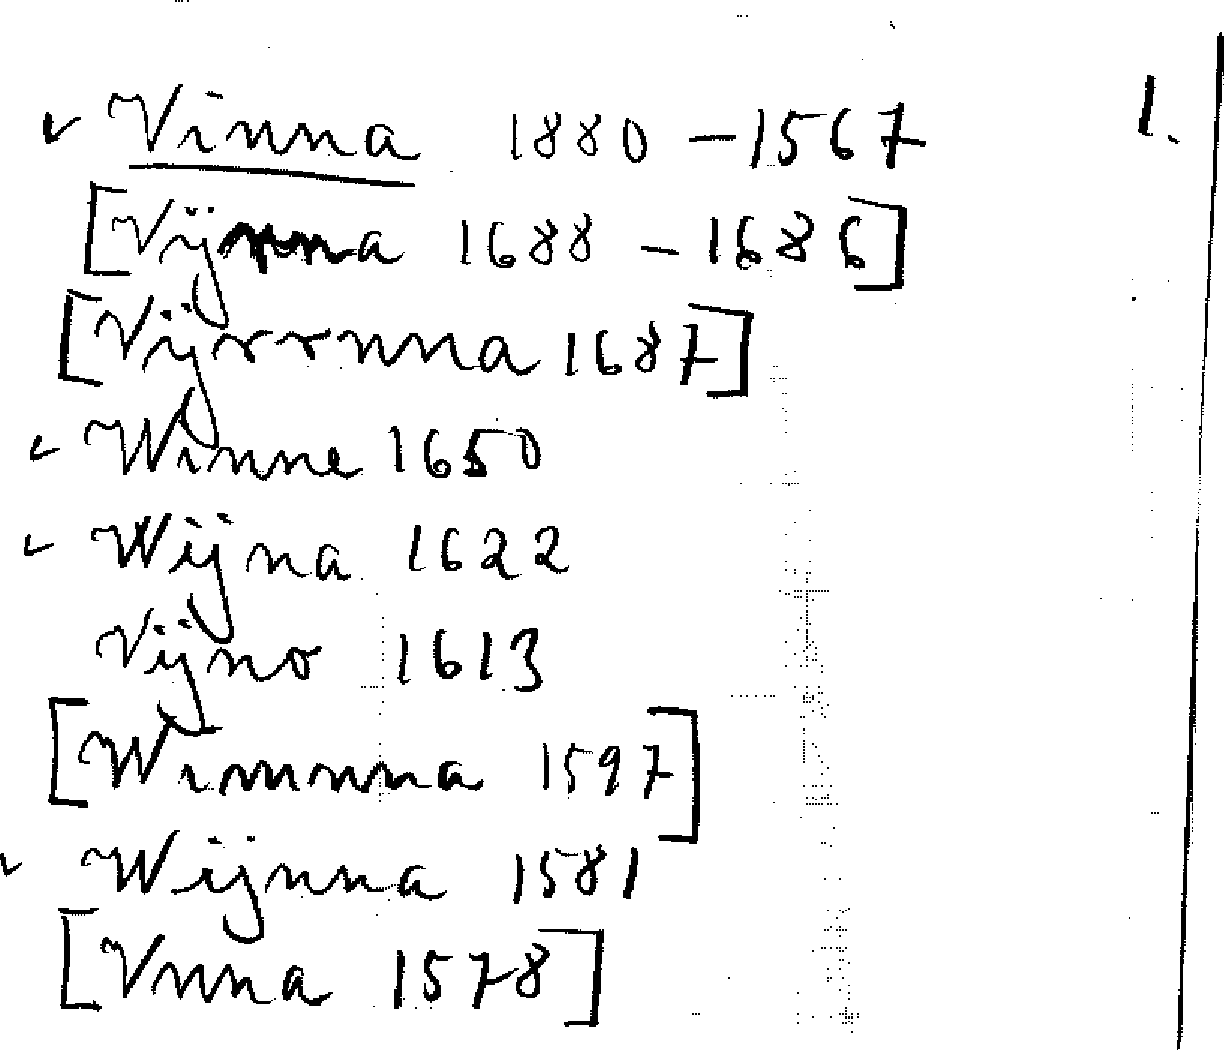 ✓ Vinna 1880 – 1567 1.
[Vijnna 1688 – 1686]
[Vijrrnna 1687]
✓ Winne 1650
✓ Wijna 1622
Vijno 1613
[Wimnna 1597]
✓ Wijnna 1581
[Vnna 1578]